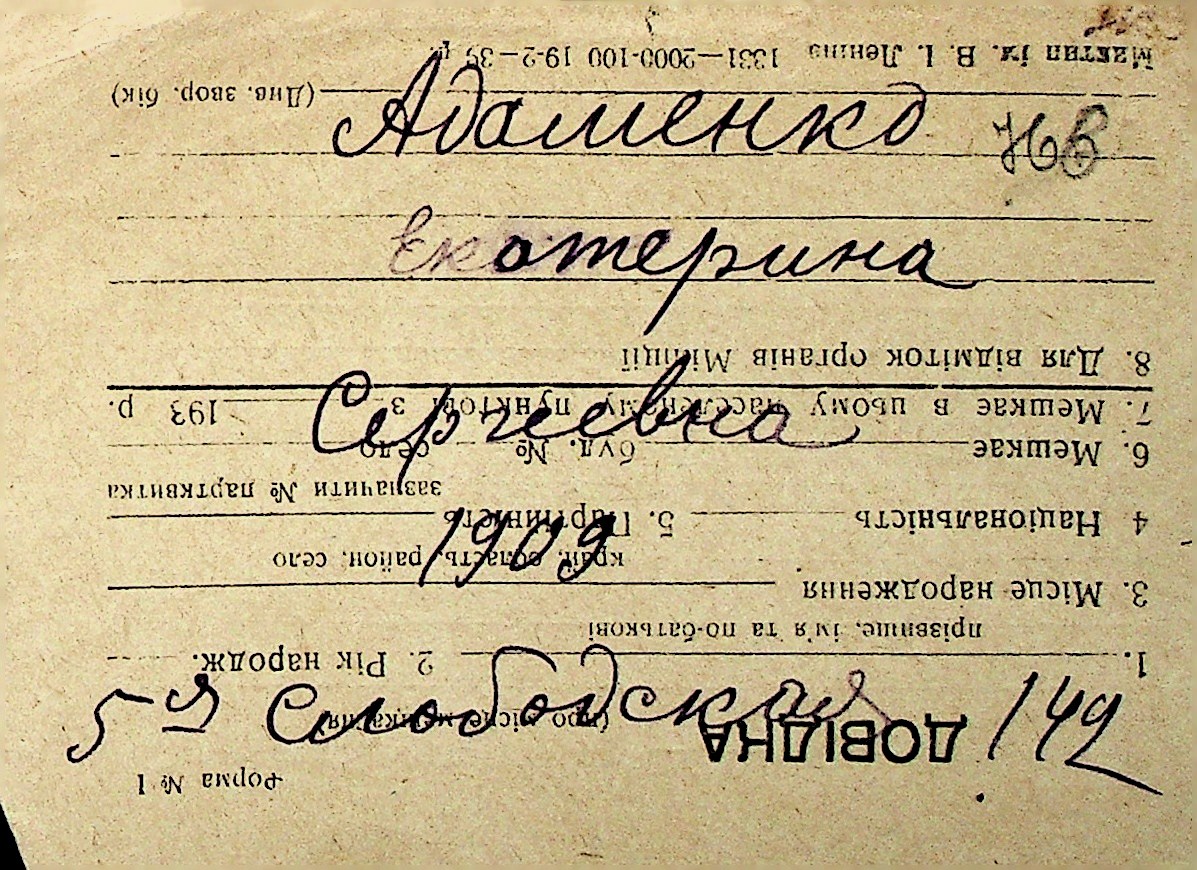 Адаменко
Екатерина
Сергеевна
1909
5-я Слободская 149
Форма № 1
ДОВІДНА
(про місце мешкання)
1. 2. Рік народж.
прізвище, ім'я та по-батькові
3. Місце народження
край, область, район, село
4 Національність 5. Партійність
зазначити № партквитка
6. Мешкає буд. № село
7. Мешкає в цьому населеному пунктові з 193 р.
8. Для відміток органів Міліції
(Див. звор. бік)
ім. В. І. Леніна 1331—2000-100 19-2-39 р.